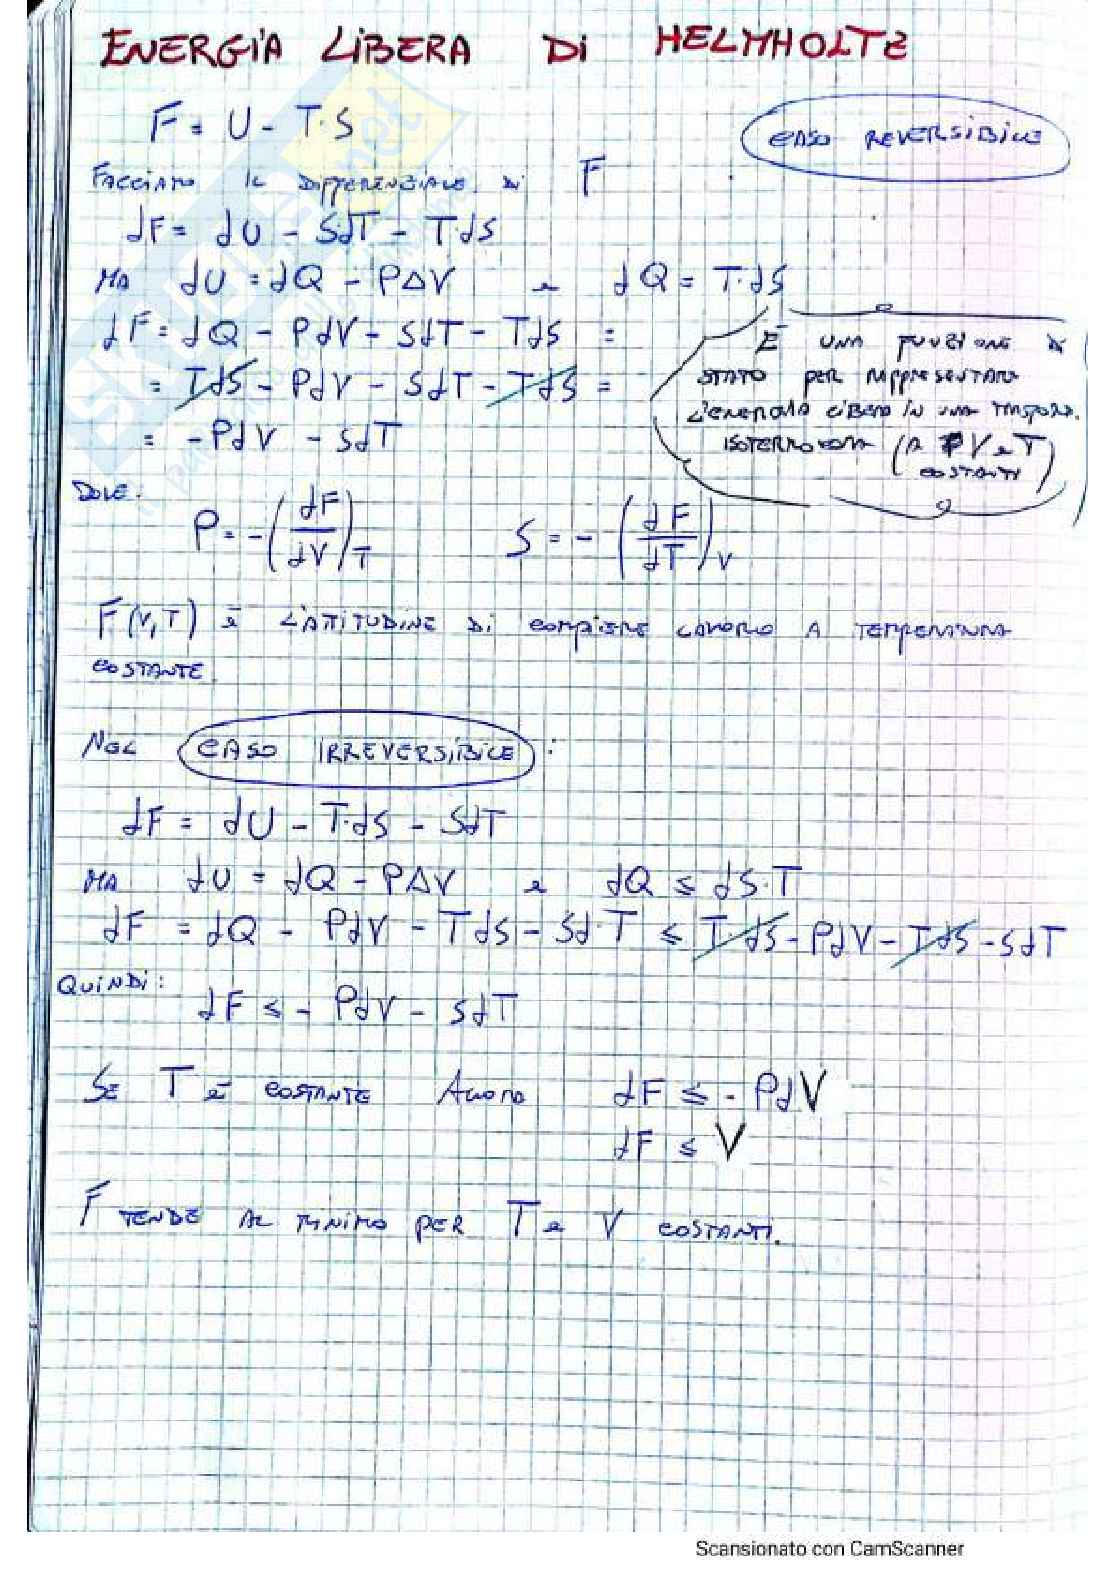 ENERGIA LIBERA DI HELMHOLTZ
F = U - T·S
CASO REVERSIBILE
FACCIAMO IL DIFFERENZIALE DI F
dF = dU - SdT - TdS
MA dU = dQ - PΔV e dQ = T·dS
dF = dQ - PdV - SdT - TdS =
= TdS - PdV - SdT - TdS =
= - PdV - SdT
È UNA FUNZIONE DI
STATO PER RAPPRESENTARE
L'ENERGIA LIBERA IN UNA TRASFORM.
ISOTERMOCORA (A V e T
COSTANTI)
DOVE:
P = -(dF/dV)T S = -(dF/dT)V
F(V,T) È L'ATTITUDINE DI COMPIERE LAVORO A TEMPERATURA
COSTANTE.
NEL CASO IRREVERSIBILE:
dF = dU - T·dS - SdT
MA dU = dQ - PΔV e dQ ≤ dS·T
dF = dQ - PdV - TdS - Sd·T ≤ T·dS - PdV - TdS - SdT
QUINDI:
dF ≤ - PdV - SdT
SE T È COSTANTE ALLORA dF ≤ - PdV
dF ≤ V
F TENDE AL MINIMO PER T e V COSTANTI.
Scansionato con CamScanner